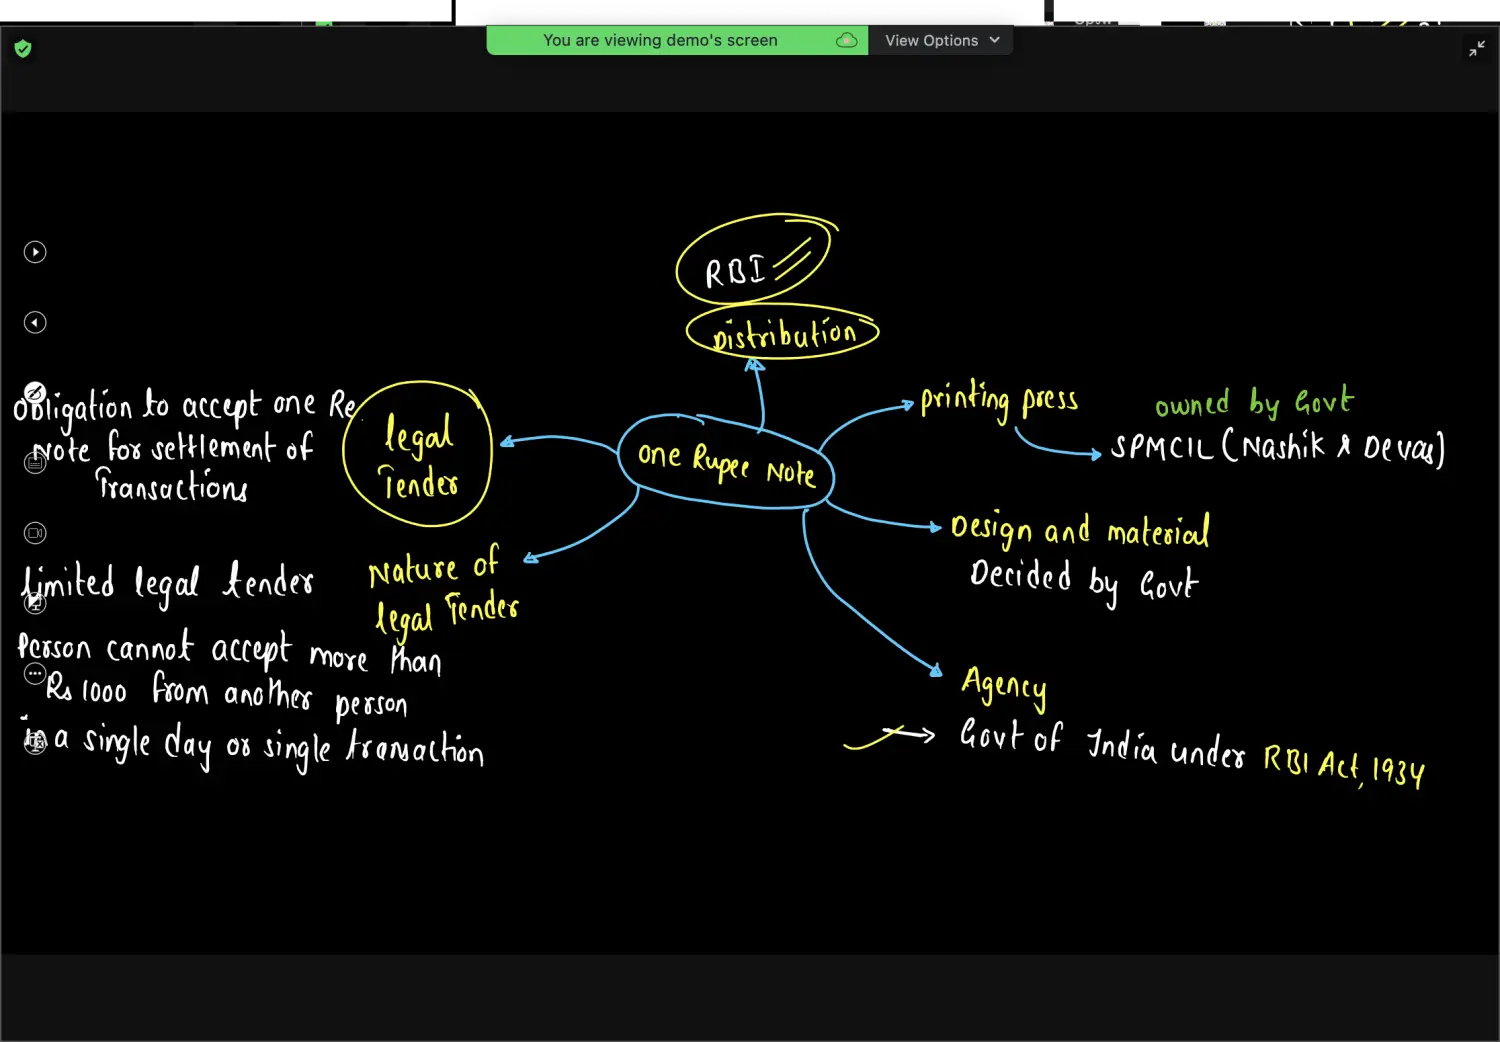 You are viewing demo's screen
View Options
RBI
Distribution
printing press
owned by Govt
SPMCIL (Nashik & Devas)
obligation to accept one Re
Note for settlement of
Transactions
legal
Tender
one Rupee Note
Design and material
Decided by Govt
Nature of
legal Tender
Limited legal tender
Person cannot accept more than
Rs 1000 from another person
in a single day or single transaction
Agency
Govt of India under RBI Act, 1934